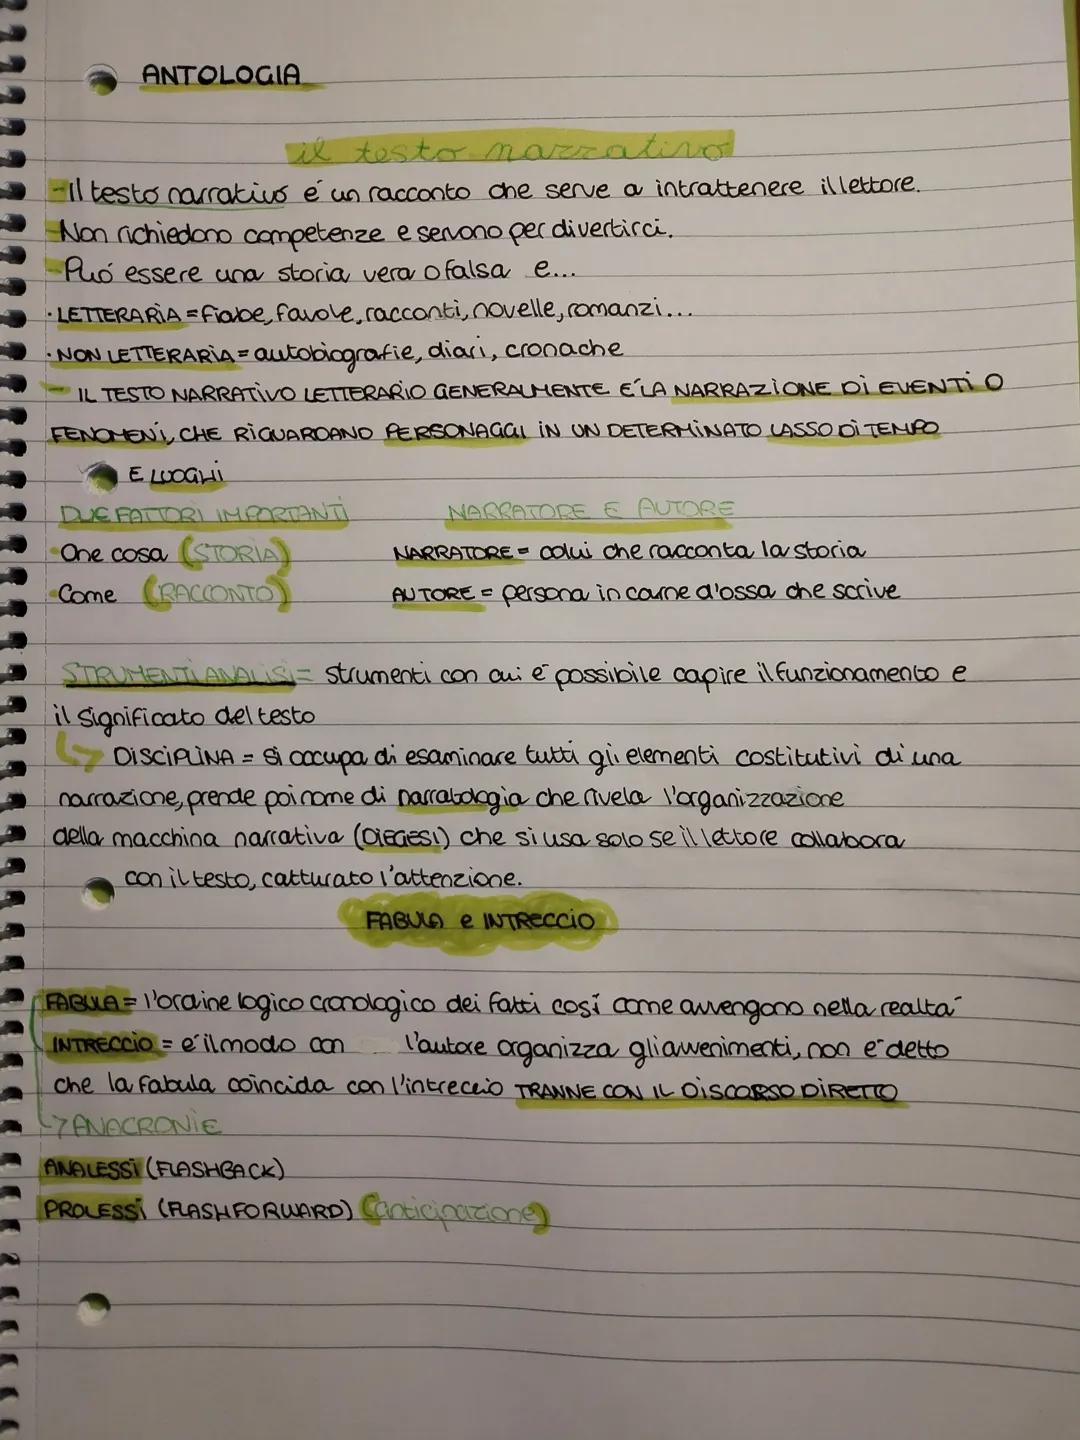 ANTOLOGIA
il testo narrativo
-Il testo narrativo é un racconto che serve a intrattenere il lettore.
-Non richiedono competenze e servono per divertirci.
-Puó essere una storia vera o falsa e...
·LETTERARIA = fiabe, favole, racconti, novelle, romanzi...
·NON LETTERARIA = autobiografie, diari, cronache
- IL TESTO NARRATIVO LETTERARIO GENERALMENTE E' LA NARRAZIONE DI EVENTI O
FENOMENI, CHE RIGUARDANO PERSONAGGI IN UN DETERMINATO LASSO DI TEMPO
E LUOGHI
DUE FATTORI IMPORTANTI NARRATORE E AUTORE
-Che cosa (STORIA) NARRATORE = colui che racconta la storia
-Come (RACCONTO) AUTORE = persona in carne d'ossa che scrive
STRUMENTI ANALISI = strumenti con cui é possibile capire il funzionamento e
il significato del testo
↳ DISCIPLINA = si occupa di esaminare tutti gli elementi costitutivi di una
narrazione, prende poi nome di narratologia che rivela l'organizzazione
della macchina narrativa (DIEGESI) che si usa solo se il lettore collabora
con il testo, catturato l'attenzione.
FABULA e INTRECCIO
FABULA = l'ordine logico cronologico dei fatti cosí come avvengono nella realtá
INTRECCIO = é il modo con l'autore organizza gli avvenimenti, non é detto
che la fabula coincida con l'intreccio TRANNE CON IL DISCORSO DIRETTO
↳ANACRONIE
ANALESSI (FLASHBACK)
PROLESSI (FLASHFORWARD) (anticipazione)